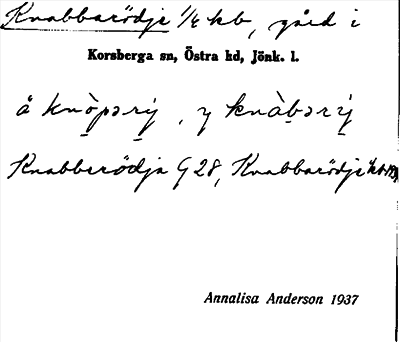 Knabbarödje 1/4 kb, gård i
Korsberga sn, Östra hd, Jönk. l.
å knòpərý, y knàbərý
Knabberödja G 28, Knabbarödje
Annalisa Anderson 1937